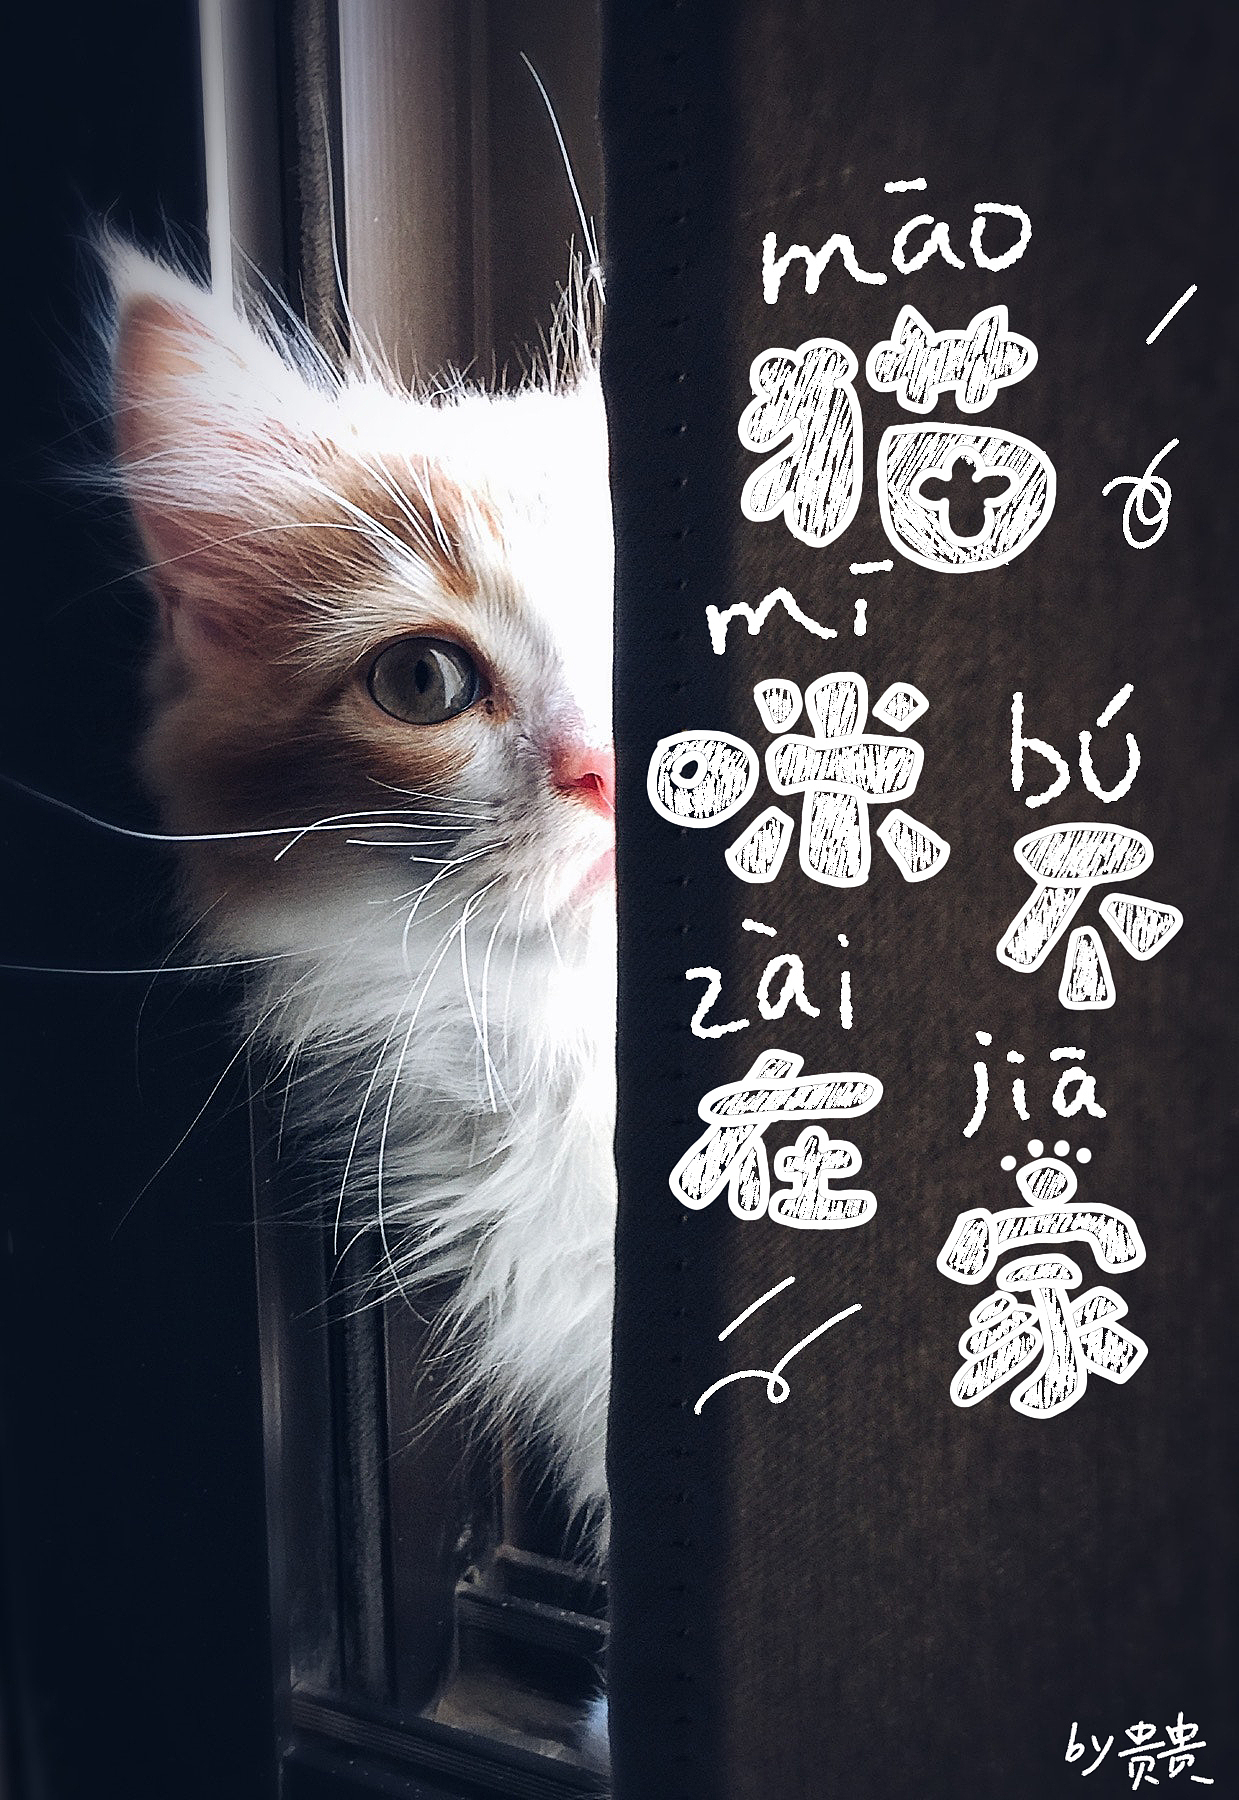 māo
猫
mī
咪
bú
不
zài
在
jiā
家
by贵贵